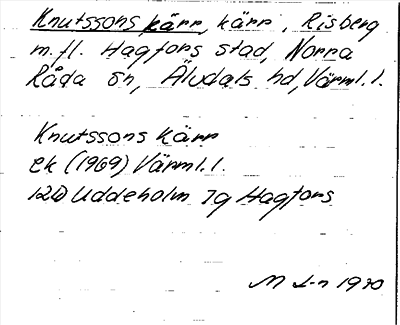 Knutssons kärr, kärr, Risberg
m.fl. Hagfors stad, Norra
Råda sn, Älvdals hd, Värml.l.
Knutssons kärr
Ek (1969) Värml.l.
12D Uddeholm 7g Hagfors
M L-n 1970